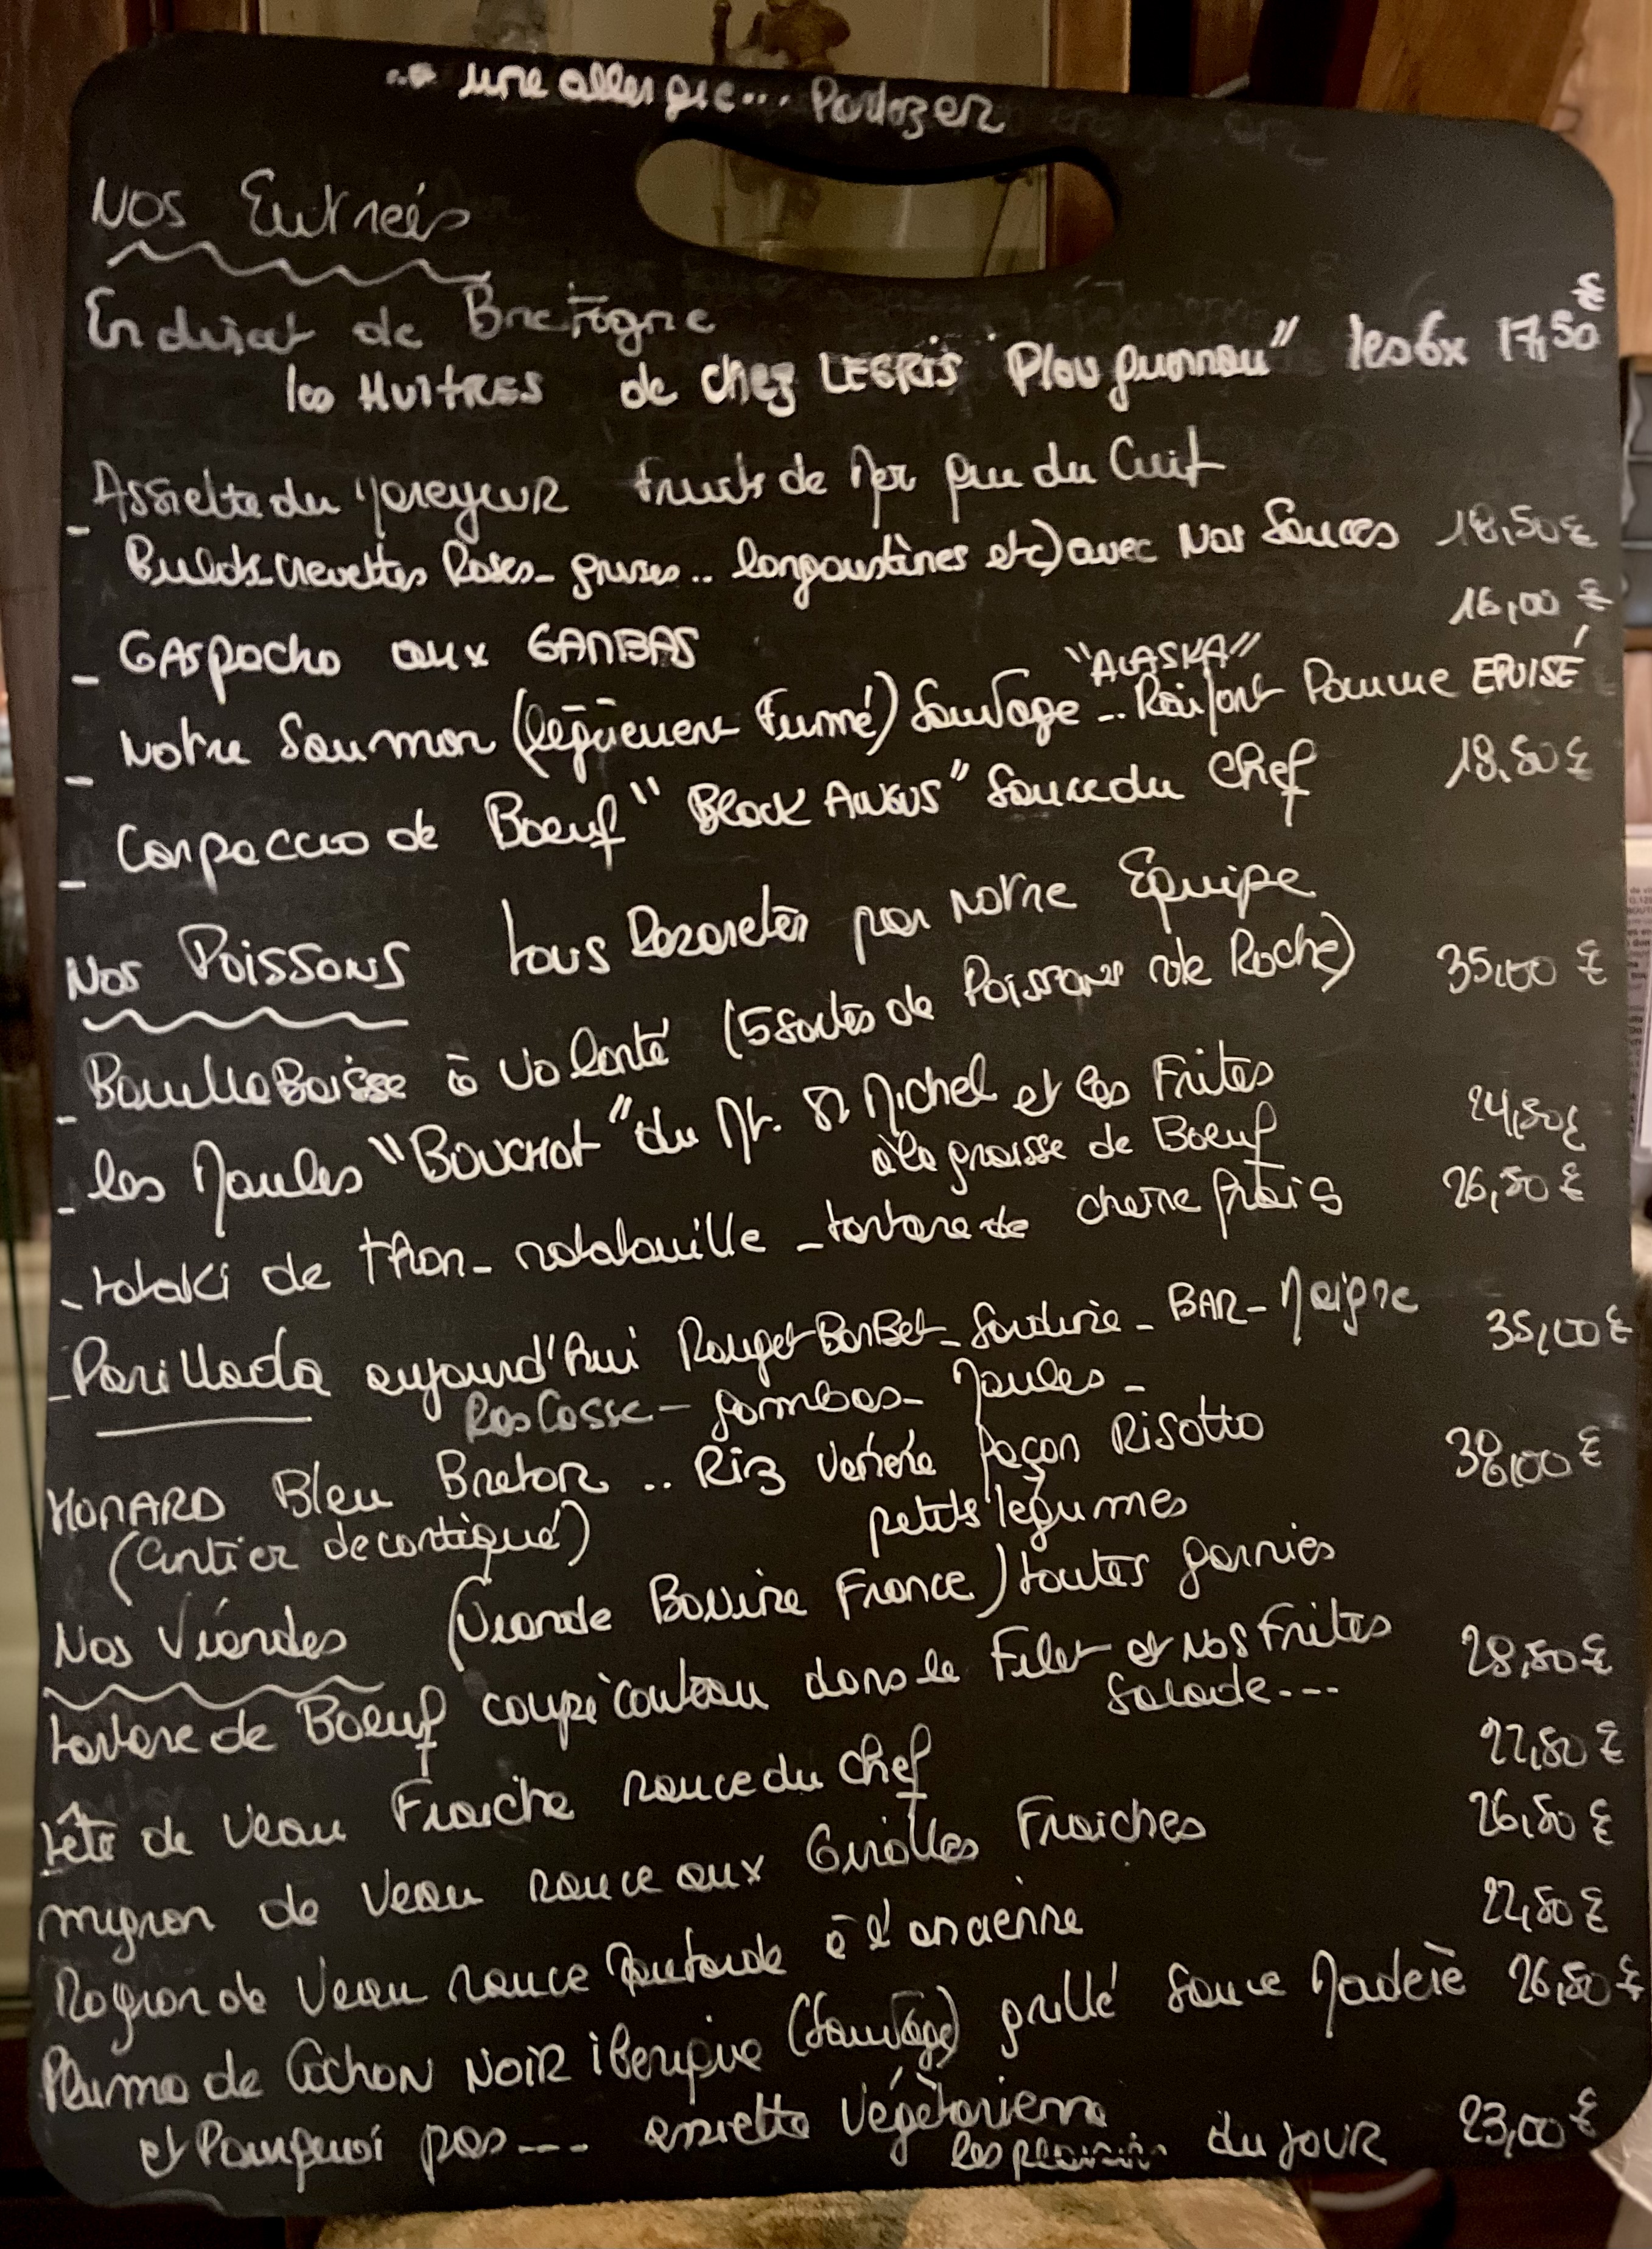 une allergie... Parlez en
Nos Entrées
En direct de Bretagne
les HUITRES de chez LEGRIS "Plouguerneau" les 6x 17,50 €
- Assiette du Mareyeur fruits de Mer que du Cuit
Bulots crevettes Roses - grises.. langoustines etc) avec Nos Sauces 18,50 €
- GASpacho aux GAMBAS 16,00 €
- Notre Saumon (légèrement Fumé) Sauvage "ALASKA" .. Raifort Pomme EPUISÉ
- Carpaccio de Boeuf "Black ANGUS" Sauce du Chef 18,50 €
Nos Poissons tous par notre Equipe
- BouillaBaisse à Volonté (5 sortes de Poissons de Roche) 35,00 €
- les Moules "BOUCHOT" du Mt. St Michel et les Frites
à la graisse de Boeuf 24,50 €
- tataki de thon - ratatouille - tartare de chèvre frais 26,50 €
- Parillada aujourd'hui Rouget BarBet - Sardine - BAR - Maigre 35,00 €
RasCasse - gambas - Moules -
HOMARD Bleu Breton .. Riz Vénéré façon Risotto 38,00 €
(entier decortiqué) petits légumes
Nos Viandes (Viande Bovine France) toutes garnies
tartare de Boeuf coupé couteau dans le Filet et Nos Frites 28,50 €
Salade---
tête de Veau Fraiche sauce du Chef 22,50 €
mignon de Veau sauce aux Girolles Fraiches 26,50 €
Rognon de Veau sauce Moutarde à l'ancienne 22,50 €
Pluma de Cochon NOIR iberique (Sauvage) grillé Sauce Madère 26,50 €
et Pourquoi pas --- assiette Végétarienne
du JOUR 23,00 €